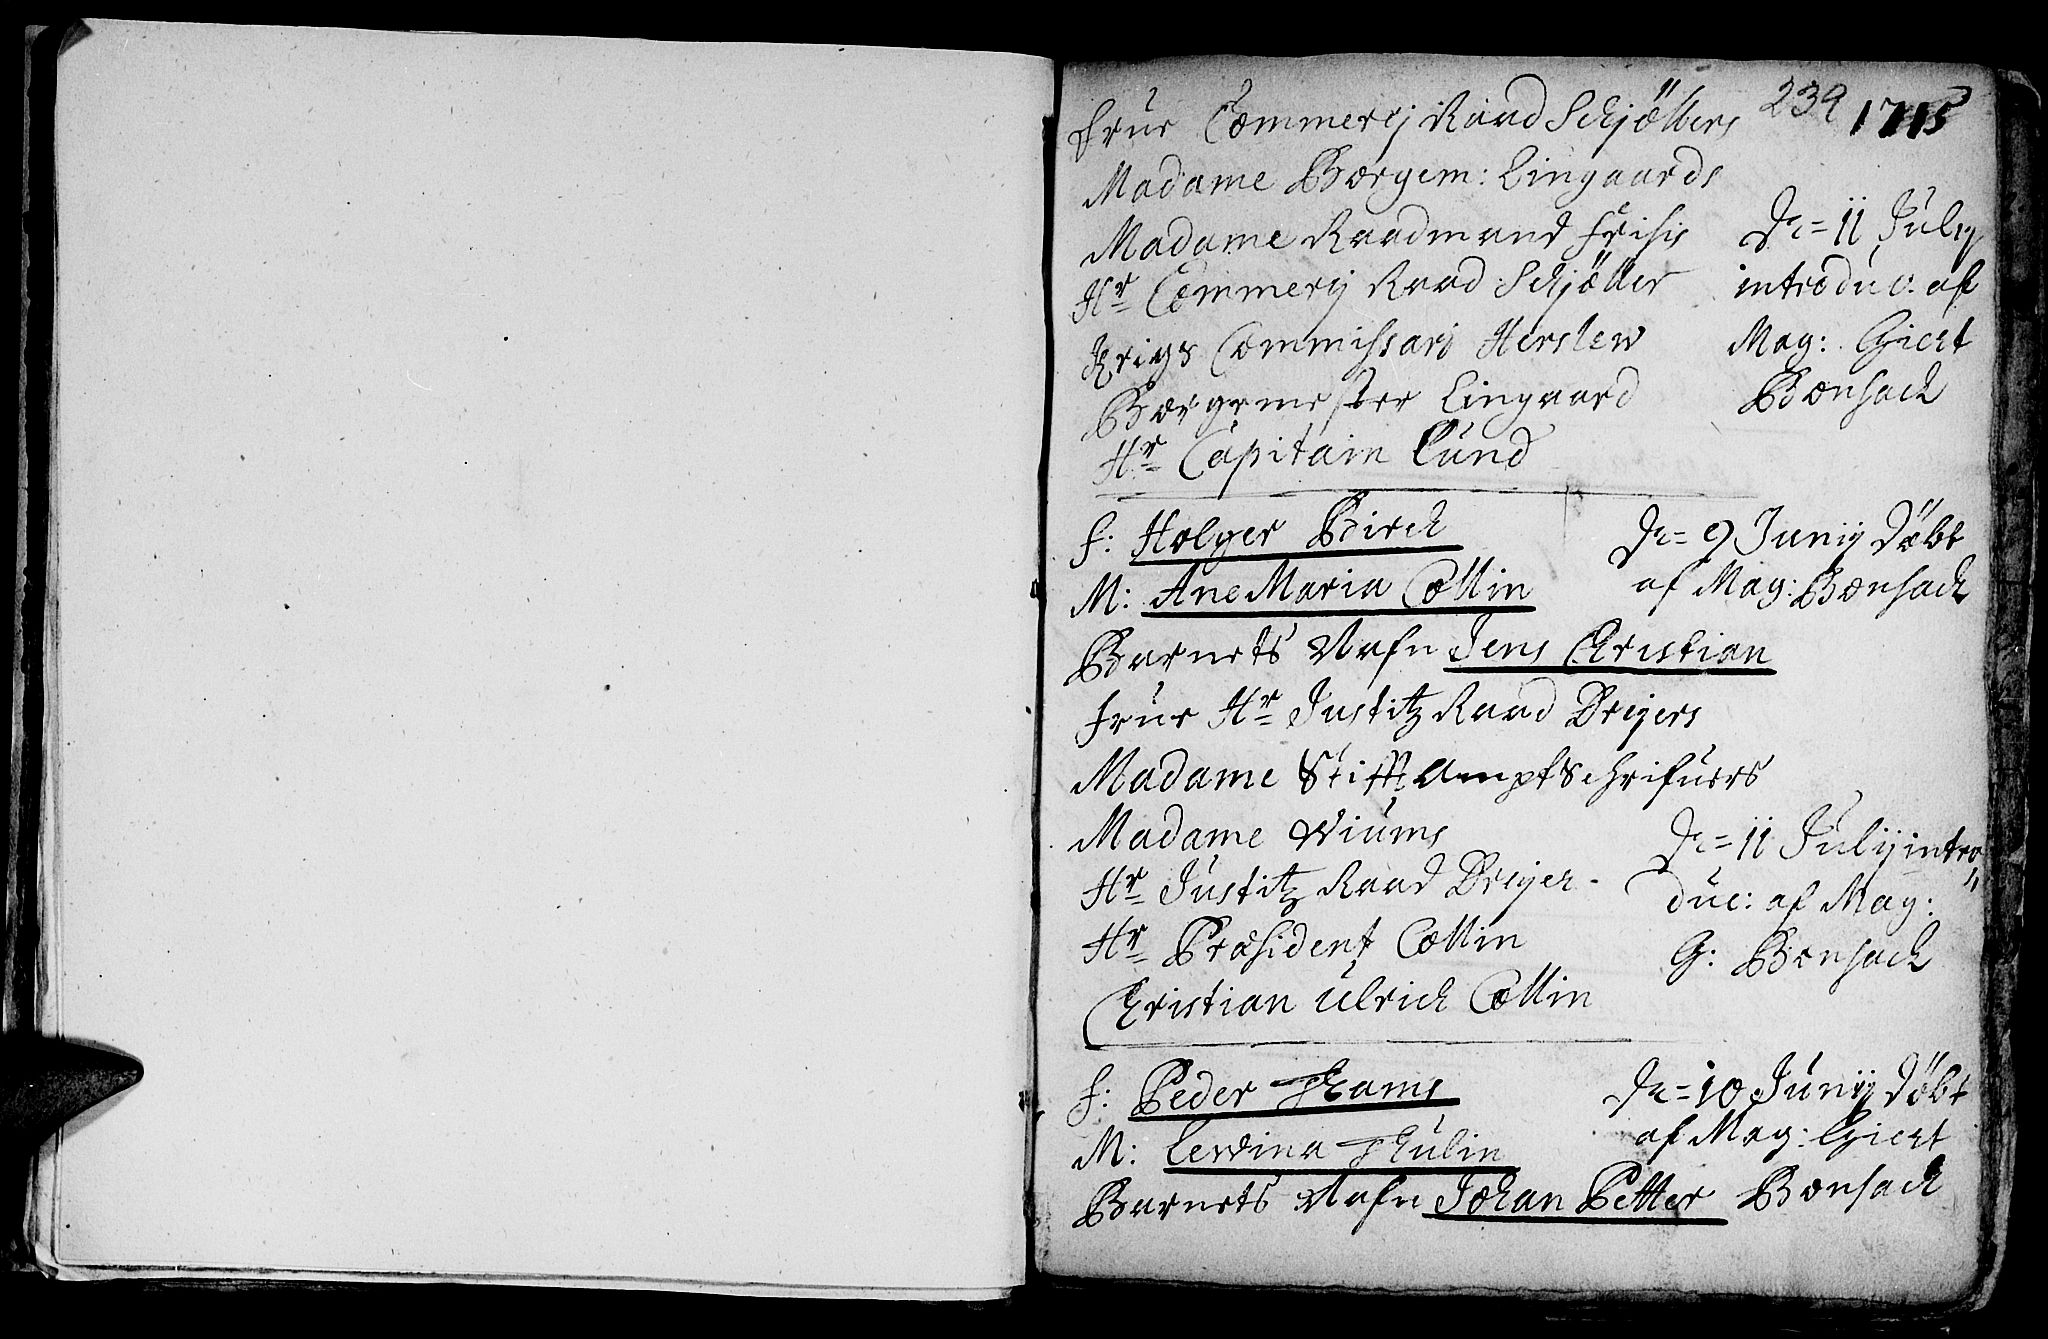 239 1715
Frue Commercij Raad Schjøllers
Madame Borgem: Lingaards
Madame Raadmand Frisis
Hr Commercij Raad Schjøller
Krigs Commissari Herslew
Borgemester Lingaard
Hr Capitain Lund
D= 11 July
introduc: af
Mag: Giert
Bonsach
F: Holger Birch
M: Ane Maria Collin
Barnets Nafn Jens Christian
D= 9 Junij Døbt
af Mag: Bonsach
Frue Hr Justitz Raad Dreyers
Madame Stifft Ampt Schrifuers
Madame Wiums
Hr Justitz Raad Dreyer
Hr Præsident Collin
Christian Ulrich Collin
D= 11 Julij intro
duc: af Mag:
G: Bonsach
F: Peder Thams
M: Lewina Thulin
Barnets Nafn Johan Petter
D= 10 Junij Døbt
af Mag: Giert
Bonsach